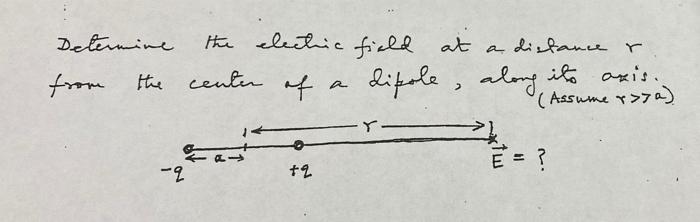 Determine the electric field at a distance r
from the center of a dipole, along its axis.
(Assume r>>a)
r
a
-q
+q
E = ?